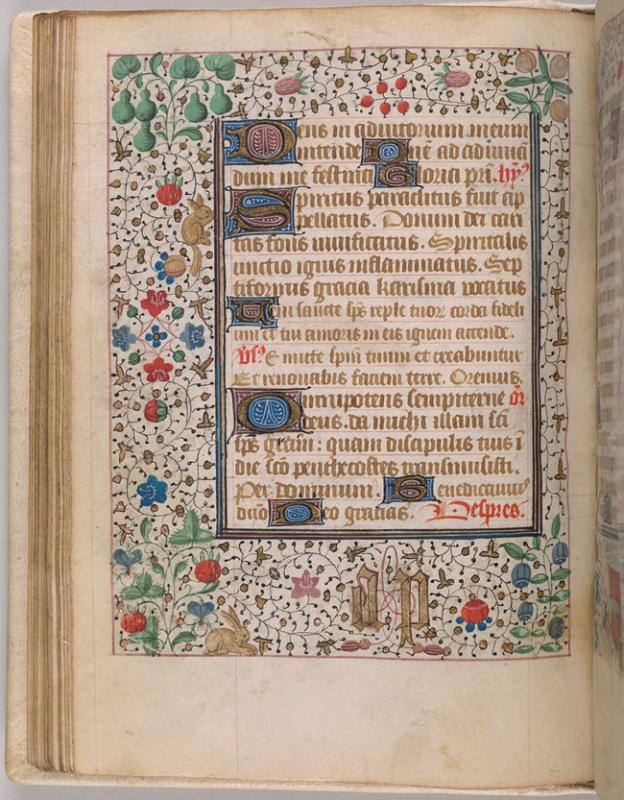 Deus in adiutorium meum
intende Dn̄e ad adiuuā
dum me festina Gloria pr̄i. hȳ
Spiritus paraclitus fuit ap
pellatus. Donum dei cari
tas fons viuificatus. Spiritalis
unctio ignis inflammatus. Sep
tiformis gracia karisma vocatus
Veni sancte sp̄s reple tuorꝝ corda fideli
um et tui amoris in eis ignem accende.
v̄s E mitte sp̄m tuum et creabuntur
Et renouabis faciem terre. Oremus.
Omnipotens sempiterne or̄
deus. da michi illam sc̄i
sp̄s gr̄am: quam discipulis tuis ī
die sc̄o penthecostes transmisisti.
Per dominum. Benedicamus
dn̄o Deo gracias. Despres.
d p